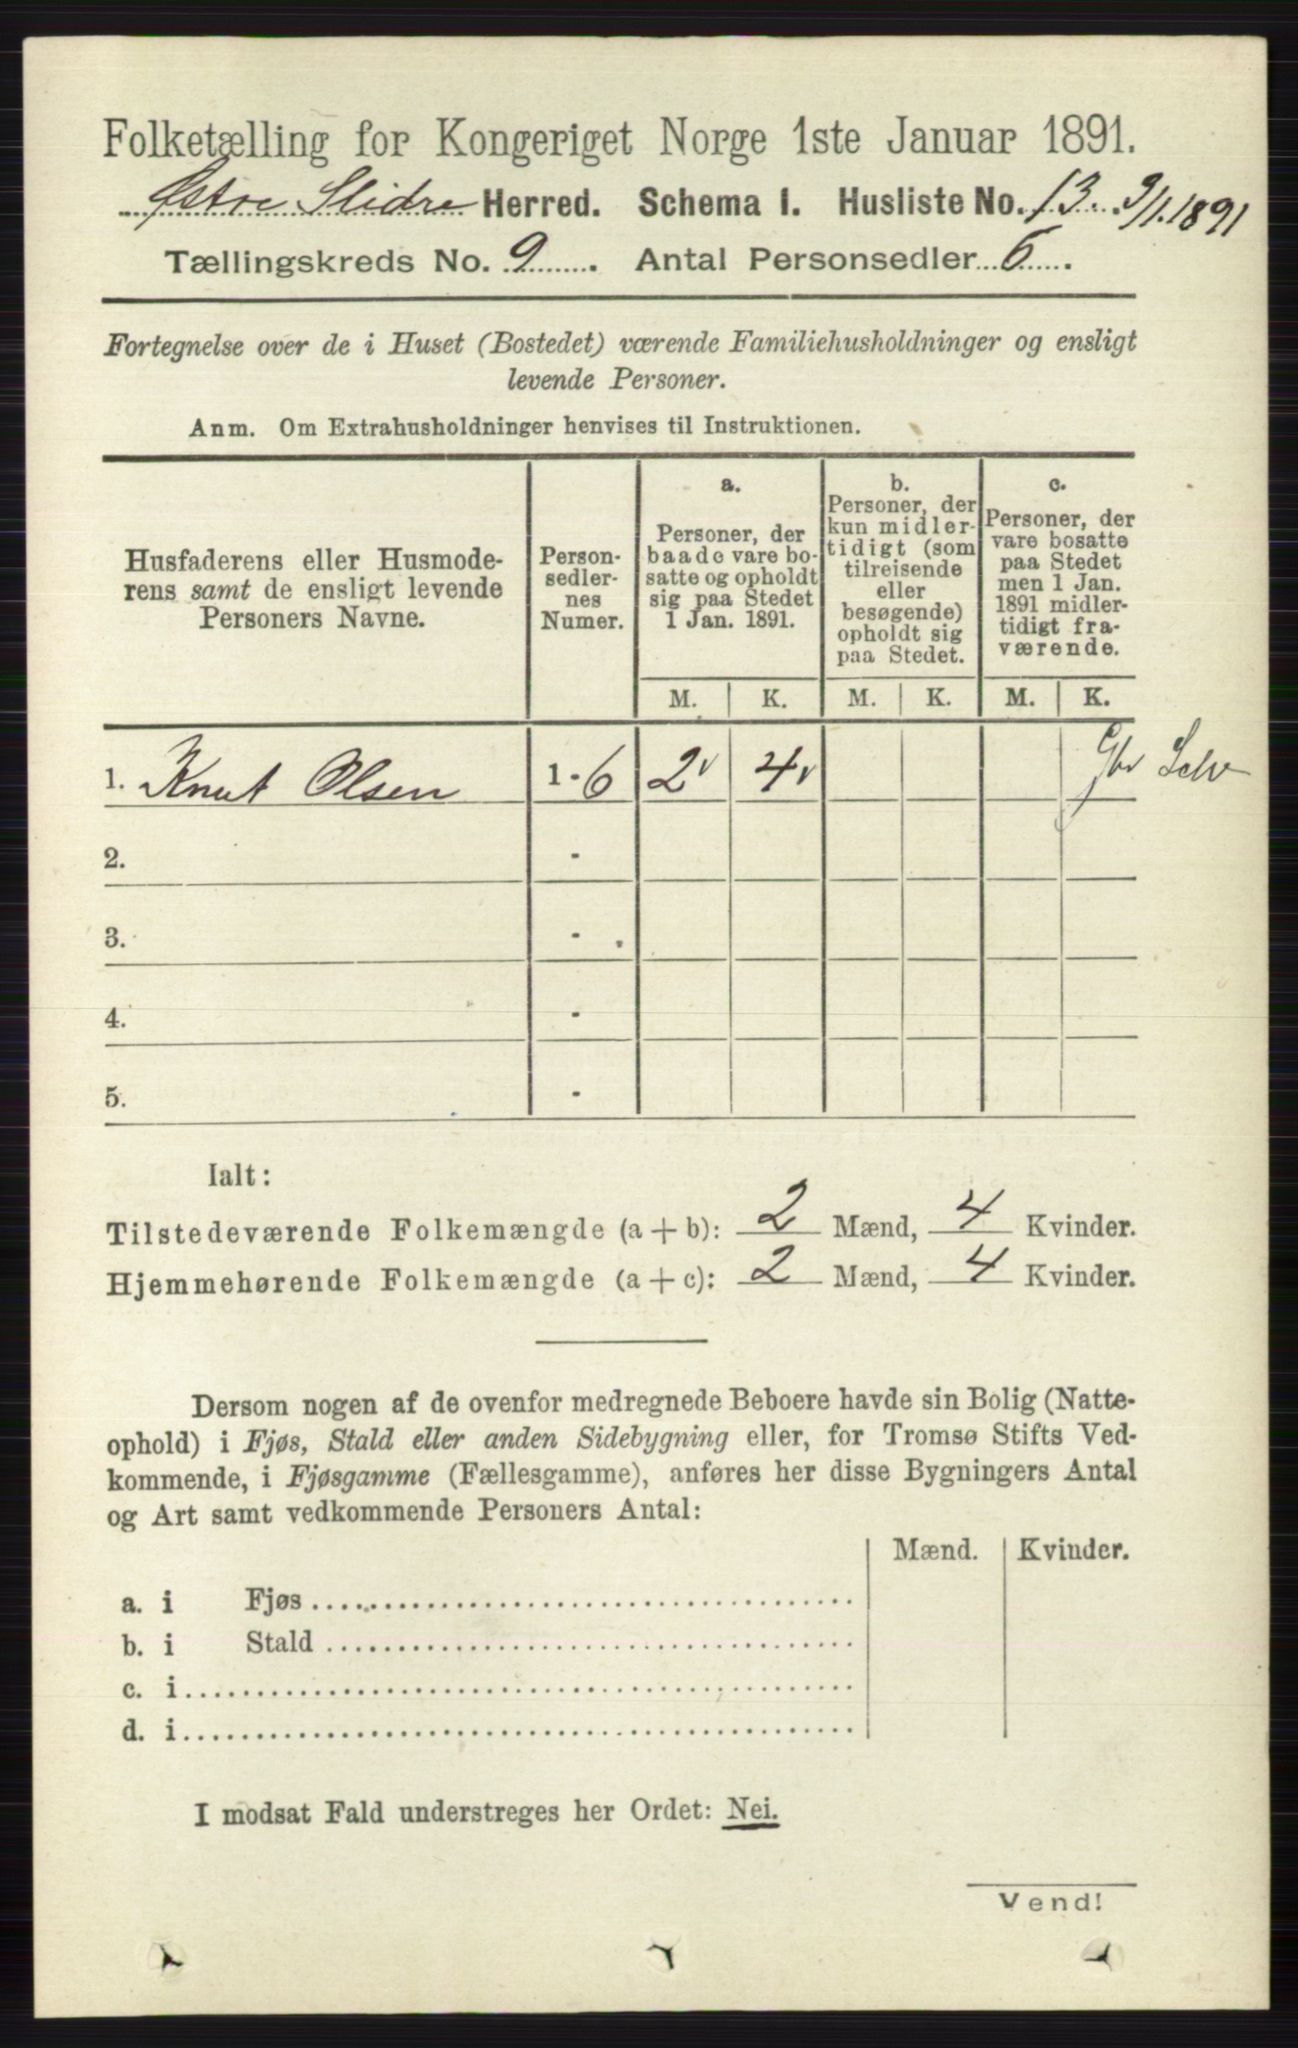 Folketælling for Kongeriget Norge 1ste Januar 1891.
Østre Slidre Herred. Schema I. Husliste No. 13. 9/1.1891
Tællingskreds No. 9. Antal Personsedler 6.
Fortegnelse over de i Huset (Bostedet) værende Familiehusholdninger og ensligt
levende Personer.
Anm. Om Extrahusholdninger henvises til Instruktionen.
Husfaderens eller Husmode-
rens samt de ensligt levende
Personers Navne.
Person-
sedler-
nes
Numer.
a.
Personer, der
baade vare bo-
satte og opholdt
sig paa Stedet
1 Jan. 1891.
b.
Personer, der
kun midler-
tidigt (som
tilreisende
eller
besøgende)
opholdt sig
paa Stedet.
c.
Personer, der
vare bosatte
paa Stedet
men 1 Jan.
1891 midler-
tidigt fra-
værende.
M. K. M. K. M. K.
1. Knut Olsen 1 - 6 2 4 Gbr Selv
2. -
3. -
4. -
5. -
Ialt:
Tilstedeværende Folkemængde (a + b): 2 Mænd, 4 Kvinder.
Hjemmehørende Folkemængde (a + c): 2 Mænd, 4 Kvinder.
Dersom nogen af de ovenfor medregnede Beboere havde sin Bolig (Natte-
ophold) i Fjøs, Stald eller anden Sidebygning eller, for Tromsø Stifts Ved-
kommende, i Fjøsgamme (Fællesgamme), anføres her disse Bygningers Antal
og Art samt vedkommende Personers Antal:
Mænd. Kvinder.
a. i Fjøs
b. i Stald
c. i
d. i
I modsat Fald understreges her Ordet: Nei.
Vend!